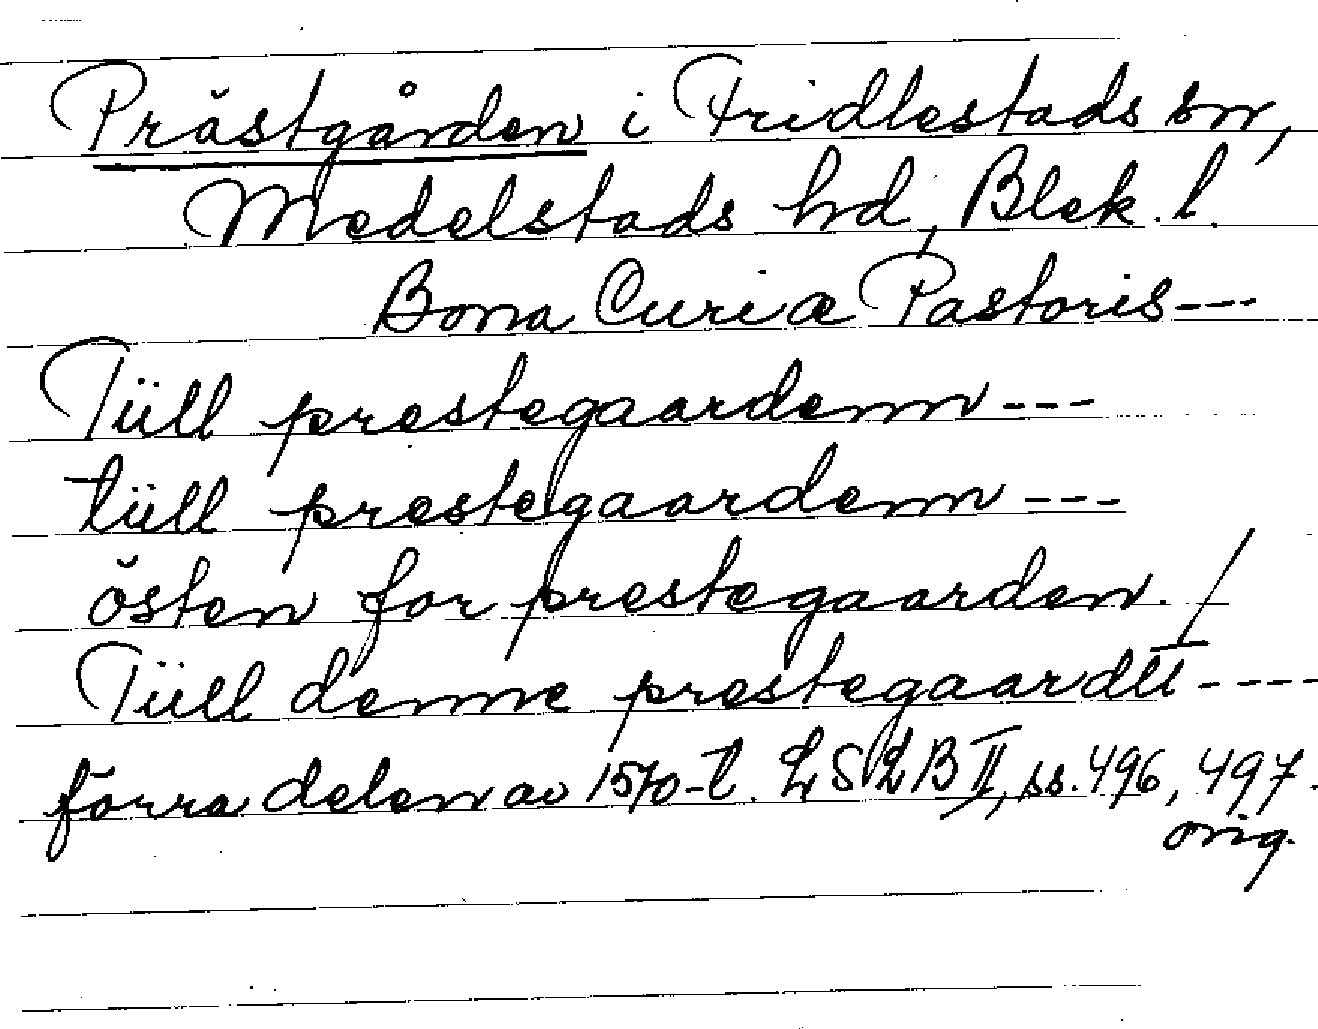 Prästgården i Fridlestads sn,
Medelstads hd, Blek. l.
Bona Curiæ Pastoris---
Tüll prestegaardenn---
tüll prestegaardenn---
östen for prestegaarden. /
Tüll denne prestegaardtt----
förra delen av 1570-t. LSLB II, ss. 496, 497.
orig.